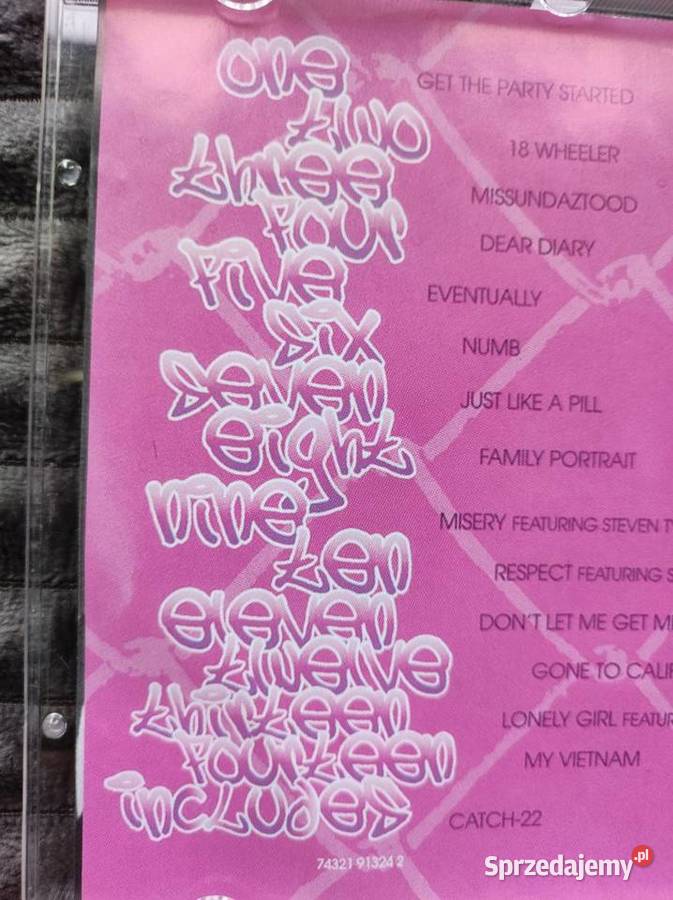 one GET THE PARTY STARTED
two 18 WHEELER
three MISSUNDAZTOOD
four DEAR DIARY
five EVENTUALLY
six NUMB
seven JUST LIKE A PILL
eight FAMILY PORTRAIT
nine MISERY FEATURING STEVEN
ten RESPECT FEATURING
eleven DON'T LET ME GET
twelve GONE TO
thirteen LONELY GIRL
fourteen MY VIETNAM
includes CATCH-22
74321 91324 2
Sprzedajemy.pl